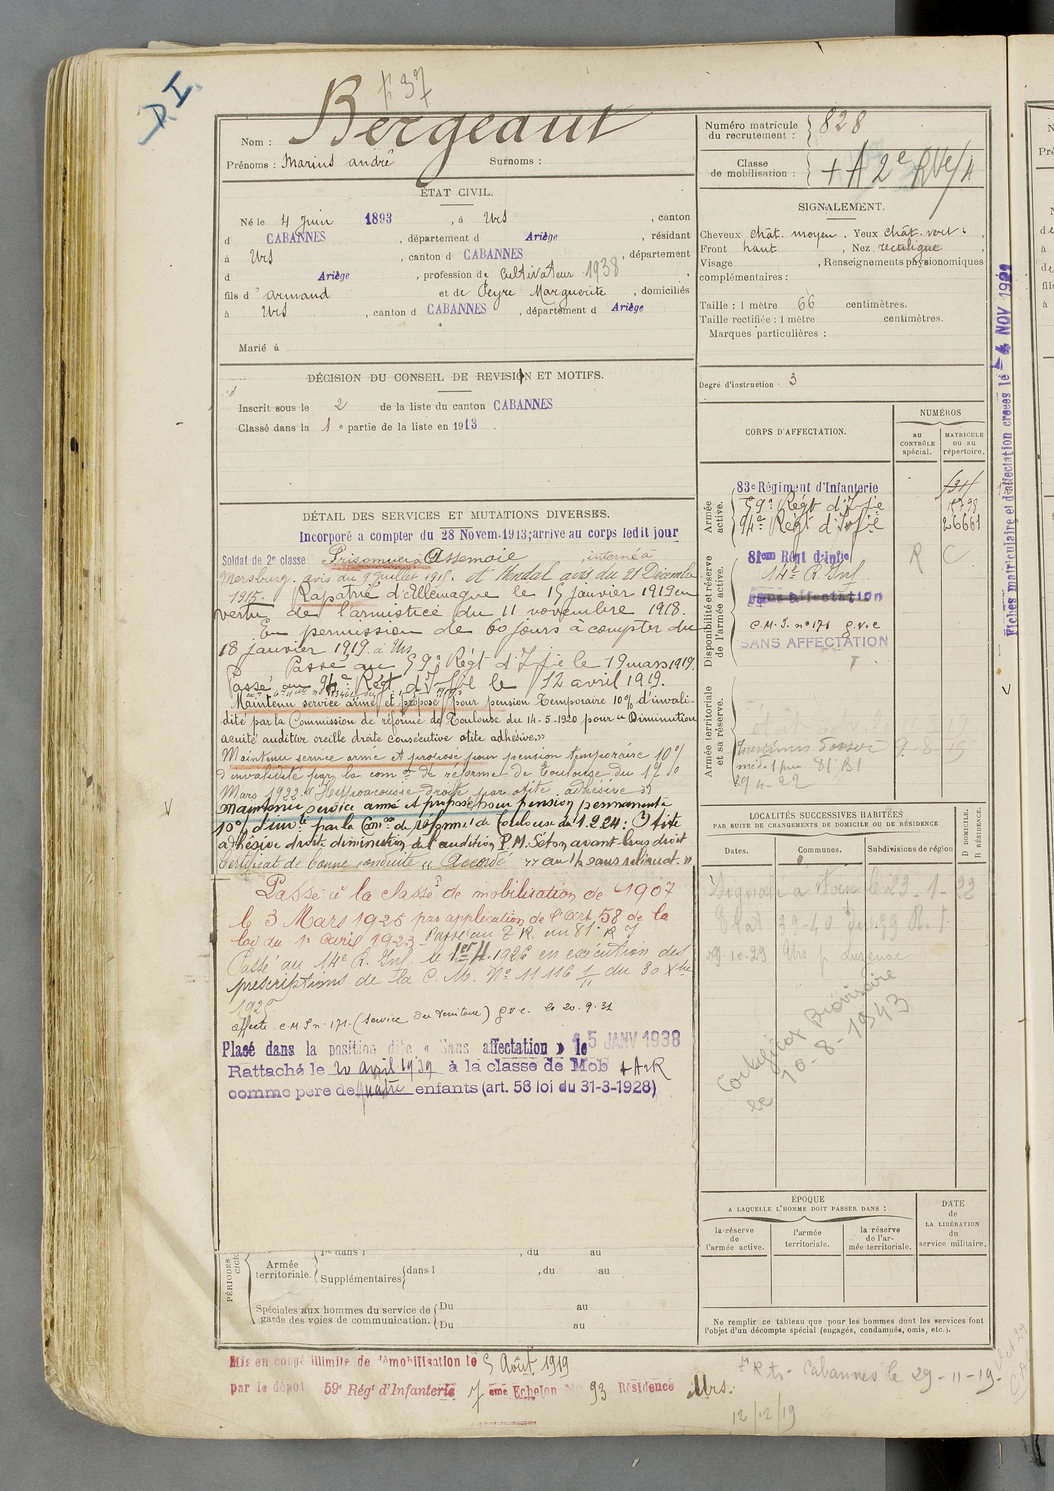 P.I.
f. 37
Bergeaut
Nom :
Prénoms : Marius andré Surnoms :
Numéro matricule du recrutement : 828
Classe de mobilisation : + A 2e RVe/4
ÉTAT CIVIL.
Né le 4 Juin 1893, à Urs, canton
d CABANNES, département d Ariège, résidant
à Urs, canton d CABANNES, département
d Ariège, profession de Cultivateur 1938
fils d' armand et de Peyre Marguerite, domiciliés
à Urs, canton d CABANNES, département d Ariège
Marié à
SIGNALEMENT.
Cheveux chât. moyen. Yeux chât. vert.
Front haut, Nez rectiligne,
Visage , Renseignements physionomiques
complémentaires :
Taille : 1 mètre 66 centimètres.
Taille rectifiée : 1 mètre centimètres.
Marques particulières :
DÉCISION DU CONSEIL DE REVISION ET MOTIFS.
Inscrit sous le 2 de la liste du canton CABANNES
Classé dans la 1e partie de la liste en 1913.
Degré d'instruction : 3
DÉTAIL DES SERVICES ET MUTATIONS DIVERSES.
Incorporé a compter du 28 Novem. 1913; arrive au corps ledit jour
Soldat de 2e classe Prisonnier à Assenoie interné à
Mersburg. avis du 9 Juillet 1915. et Stendal avis du 21 Décembre
1915. Rapatrié d'Allemagne le 15 janvier 1919 en
vertu de l'armistice du 11 novembre 1918.
En permission de 60 jours à compter du
18 janvier 1919 à Urs
Passé au 59e Régt d'Ifie le 19 mars 1919.
Passé au 94e Régt d'Ifie le 12 avril 1919.
Maintenu service armé et proposé pour pension temporaire 10% d'invali-
dité par la Commission de réforme de Toulouse du 14-5-1920 pour « Diminution
acuité auditive oreille droite consécutive otite adhésive.»
Maintenu service armé et proposé pour pension temporaire 10%
d'invalidité par la com.on de réforme de Toulouse du 17
Mars 1922. « Hypoacousie droite par otite adhésive »
Maintenu service armé et proposé pour pension permanente
10% d'inv.té par la Con.on de réforme de Toulouse du 1.2.24: Otite
adhésive droite diminution de l'audition P.M. Séton avant-bras droit
Certificat de bonne conduite « Accordé »
Passé à la classe de mobilisation de 1907
le 3 Mars 1925 par application de l'art. 58 de la
loi du 1r Avril 1923 Passé au 81e R I
Passé au 14e R. Inf. le 1er 4. 1926 en exécution des
prescriptions de la C. M. No 11116 1/11 du 30 Xbre
1925
affecté C.M.I n° 171 (service du Territoire) g.v.c. le 20.9.31
Placé dans la position dite « Sans affectation » le 15 JANV 1938
Rattaché le 20 avril 1939 à la classe de Mob + A 2 R
comme père de quatre enfants (art. 58 loi du 31-3-1928)
CORPS D'AFFECTATION.
NUMÉROS
AU CONTRÔLE spécial.
MATRICULE ou au répertoire.
Armée active.
83e Régiment d'Infanterie
59e Régt d'Ifie 15798
94e Régt d'Ifie 26661
Disponibilité et réserve de l'armée active.
81eme Régt d'Infie R C
14e R. Inf.
C.M.I. n° 171 g.v.c
SANS AFFECTATION
Armée territoriale et sa réserve.
9-8-19
29-4-22
LOCALITÉS SUCCESSIVES HABITÉES
PAR SUITE DE CHANGEMENTS DE DOMICILE OU DE RÉSIDENCE
Dates. Communes. Subdivisions de région D. DOMICILE. R. RÉSIDENCE.
29.10.29 Urs p. Luzenac
10-8-1943
ÉPOQUE
A LAQUELLE L'HOMME DOIT PASSER DANS :
la réserve de l'armée active.
l'armée territoriale.
la réserve de l'armée territoriale.
DATE de LA LIBÉRATION du service militaire.
PÉRIODES
Armée territoriale. dans l , du au
Supplémentaires dans l , du au
Spéciales aux hommes du service de garde des voies de communication. Du au
Du au
Ne remplir ce tableau que pour les hommes dont les services font
l'objet d'un décompte spécial (engagés, condamnés, omis, etc.).
Mis en congé illimité de démobilisation le 5 Août 1919
par le dépôt 59e Régt d'Infanterie 7eme Echelon N° 93 Résidence Urs.
Cabannes le 29-11-19
12/12/19
Fiches matriculaire et d'affectation créées le 4 NOV 1929